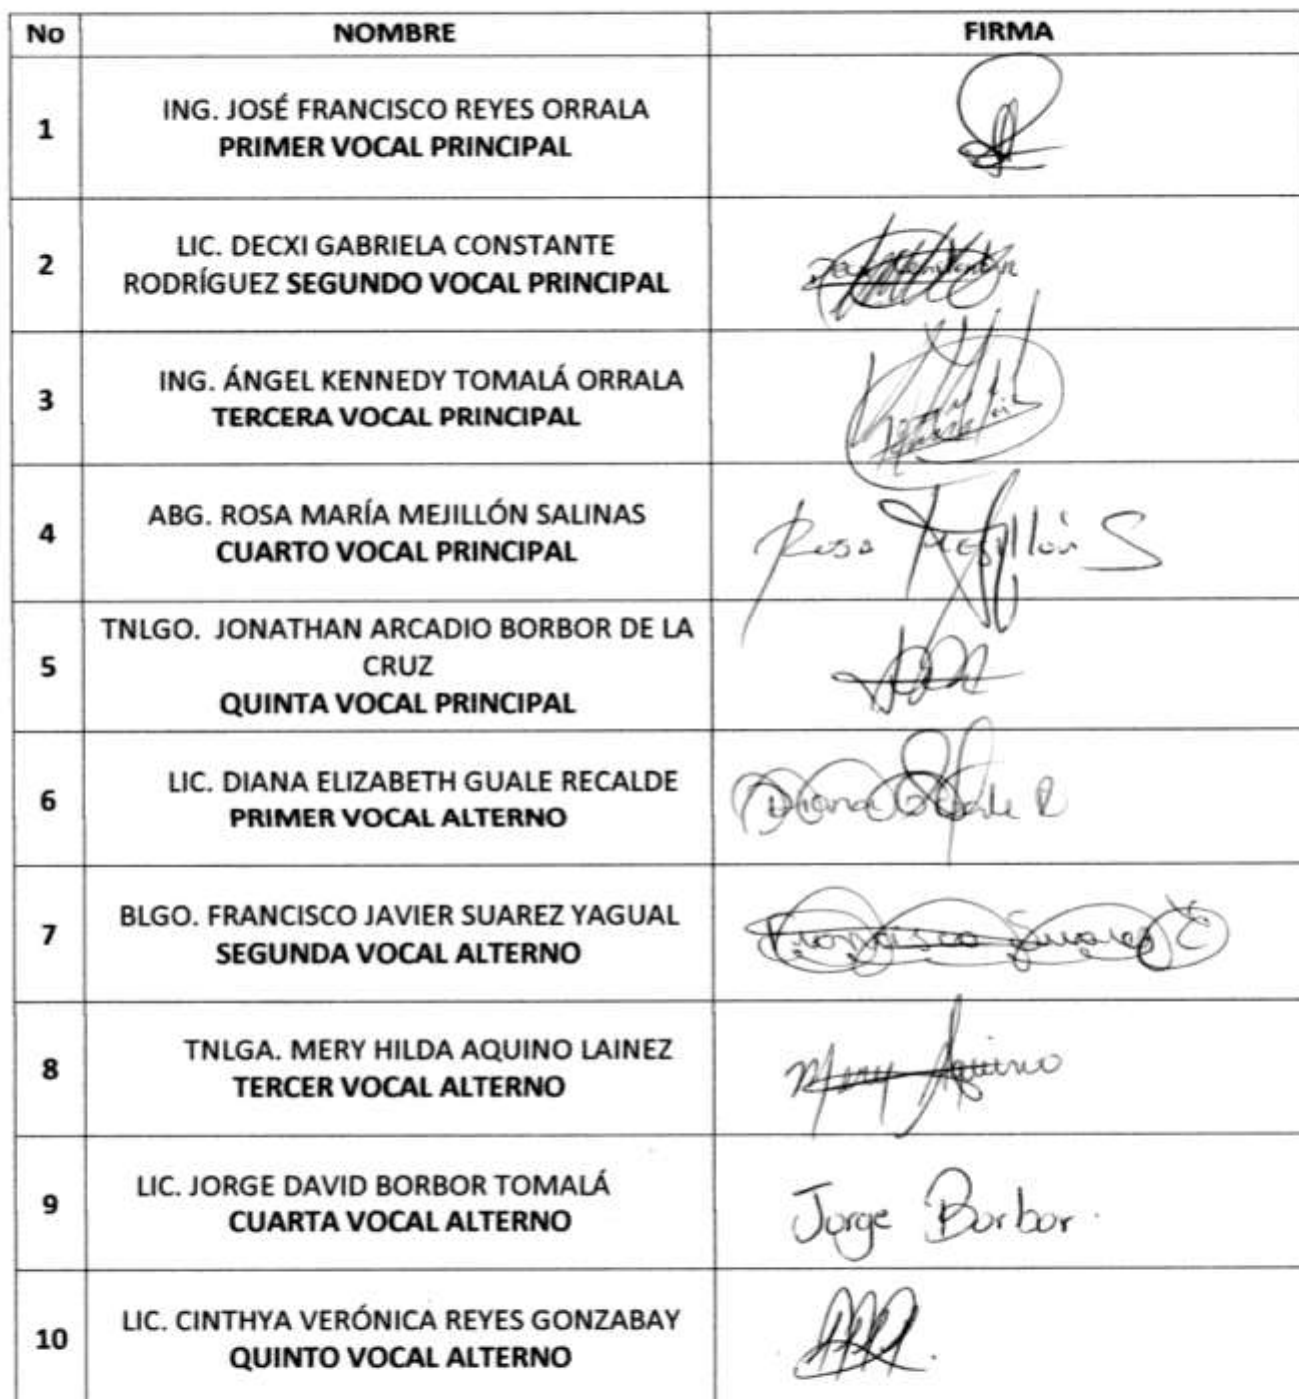 No NOMBRE FIRMA
1 ING. JOSÉ FRANCISCO REYES ORRALA
PRIMER VOCAL PRINCIPAL
2 LIC. DECXI GABRIELA CONSTANTE
RODRÍGUEZ SEGUNDO VOCAL PRINCIPAL
3 ING. ÁNGEL KENNEDY TOMALÁ ORRALA
TERCERA VOCAL PRINCIPAL
4 ABG. ROSA MARÍA MEJILLÓN SALINAS
CUARTO VOCAL PRINCIPAL
Rosa Mejillón S
5 TNLGO. JONATHAN ARCADIO BORBOR DE LA
CRUZ
QUINTA VOCAL PRINCIPAL
6 LIC. DIANA ELIZABETH GUALE RECALDE
PRIMER VOCAL ALTERNO
Diana Guale R
7 BLGO. FRANCISCO JAVIER SUAREZ YAGUAL
SEGUNDA VOCAL ALTERNO
Francisco Suarez Y
8 TNLGA. MERY HILDA AQUINO LAINEZ
TERCER VOCAL ALTERNO
Mery Aquino
9 LIC. JORGE DAVID BORBOR TOMALÁ
CUARTA VOCAL ALTERNO
Jorge Borbor.
10 LIC. CINTHYA VERÓNICA REYES GONZABAY
QUINTO VOCAL ALTERNO